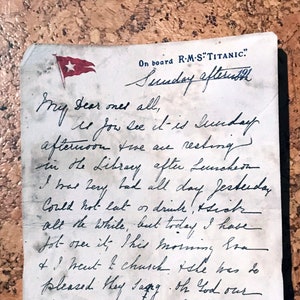 On board R·M·S "TITANIC."
Sunday afternoon
My Dear ones all,
As you see it is Sunday
afternoon & we are resting
in the Library after Luncheon
I was very bad all day yesterday
Could not eat or drink, & sick
all the while, but today I have
got over it, This morning Eva
& I went to church & she was so
pleased they sang oh God our